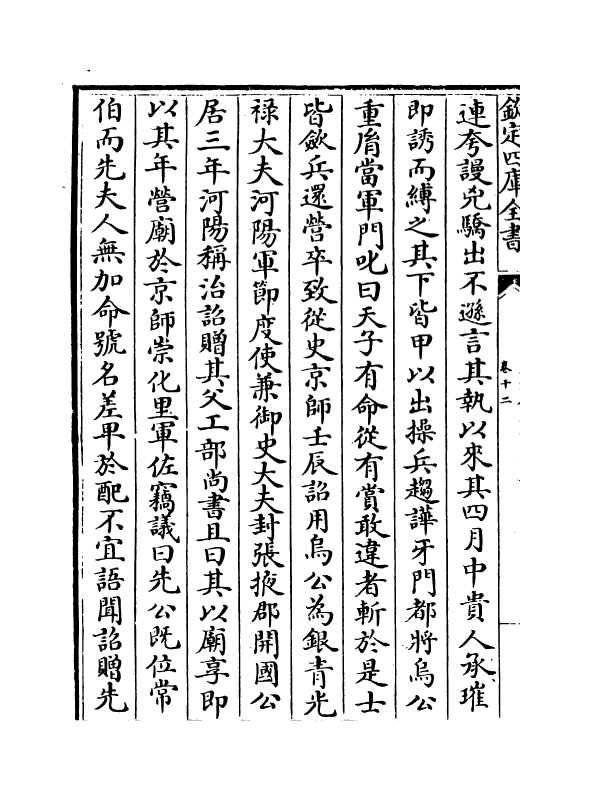 欽定四庫全書
卷十二
連夸謾兇驕出不遜言其執以來其四月中貴人承璀
即誘而縛之其下皆甲以出操兵趨譁牙門都將烏公
重𦙍當軍門叱曰天子有命從有賞敢違者斬於是士
皆歛兵還營卒致從史京師壬辰詔用烏公為銀青光
祿大夫河陽軍節度使兼御史大夫封張掖郡開國公
居三年河陽稱治詔贈其父工部尚書且曰其以廟享即
以其年營廟於京師崇化里軍佐竊議曰先公既位常
伯而先夫人無加命號名差卑於配不宜語聞詔贈先